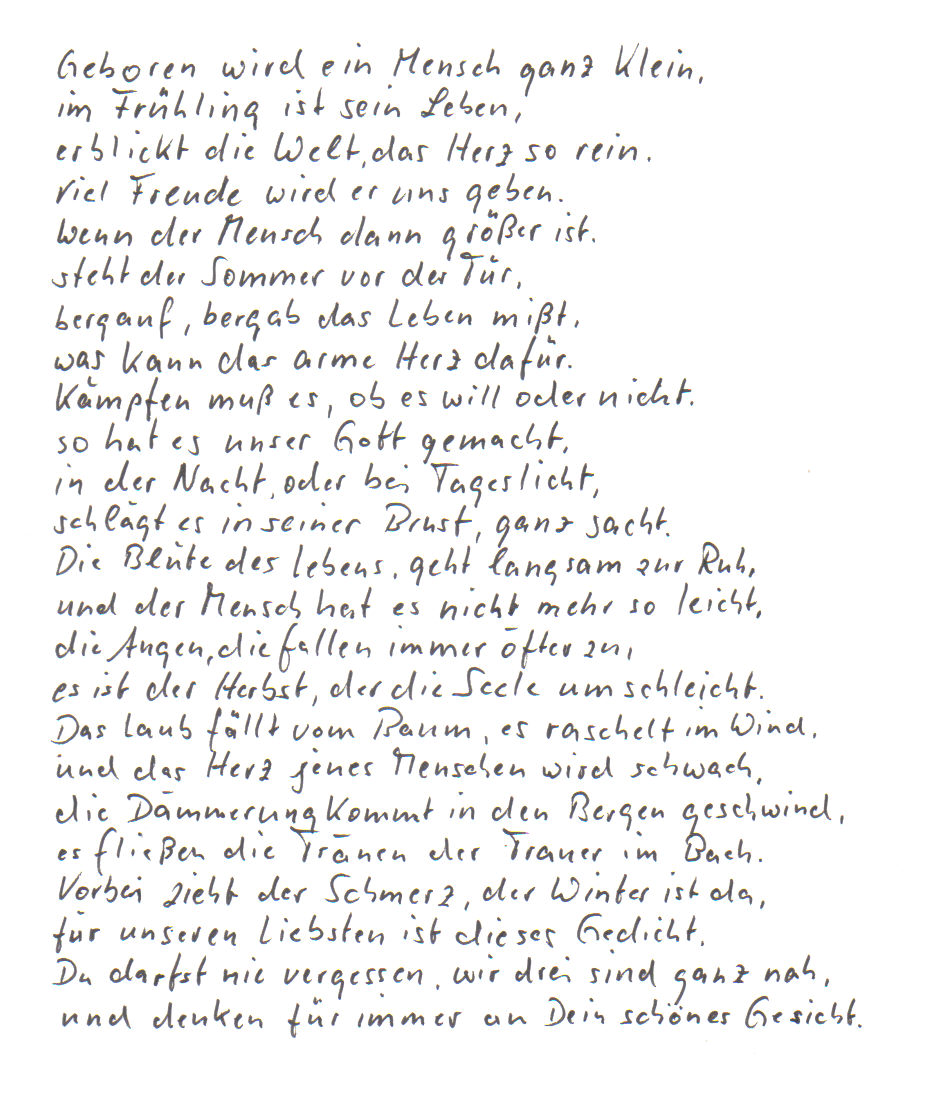 Geboren wird ein Mensch ganz klein,
im Frühling ist sein Leben,
erblickt die Welt, das Herz so rein.
viel Freude wird er uns geben.
Wenn der Mensch dann größer ist.
steht der Sommer vor der Tür,
bergauf, bergab das Leben mißt,
was kann das arme Herz dafür.
Kämpfen muß es, ob es will oder nicht.
so hat es unser Gott gemacht,
in der Nacht, oder bei Tageslicht,
schlägt es in seiner Brust, ganz sacht.
Die Blüte des Lebens, geht langsam zur Ruh,
und der Mensch hat es nicht mehr so leicht,
die Augen, die fallen immer öfter zu,
es ist der Herbst, der die Seele umschleicht.
Das Laub fällt vom Baum, es raschelt im Wind,
und das Herz jenes Menschen wird schwach,
die Dämmerung kommt in den Bergen geschwind,
es fließen die Tränen der Trauer im Bach.
Vorbei zieht der Schmerz, der Winter ist da,
für unseren Liebsten ist dieses Gedicht,
Du darfst nie vergessen, wir drei sind ganz nah,
und denken für immer an Dein schönes Gesicht.